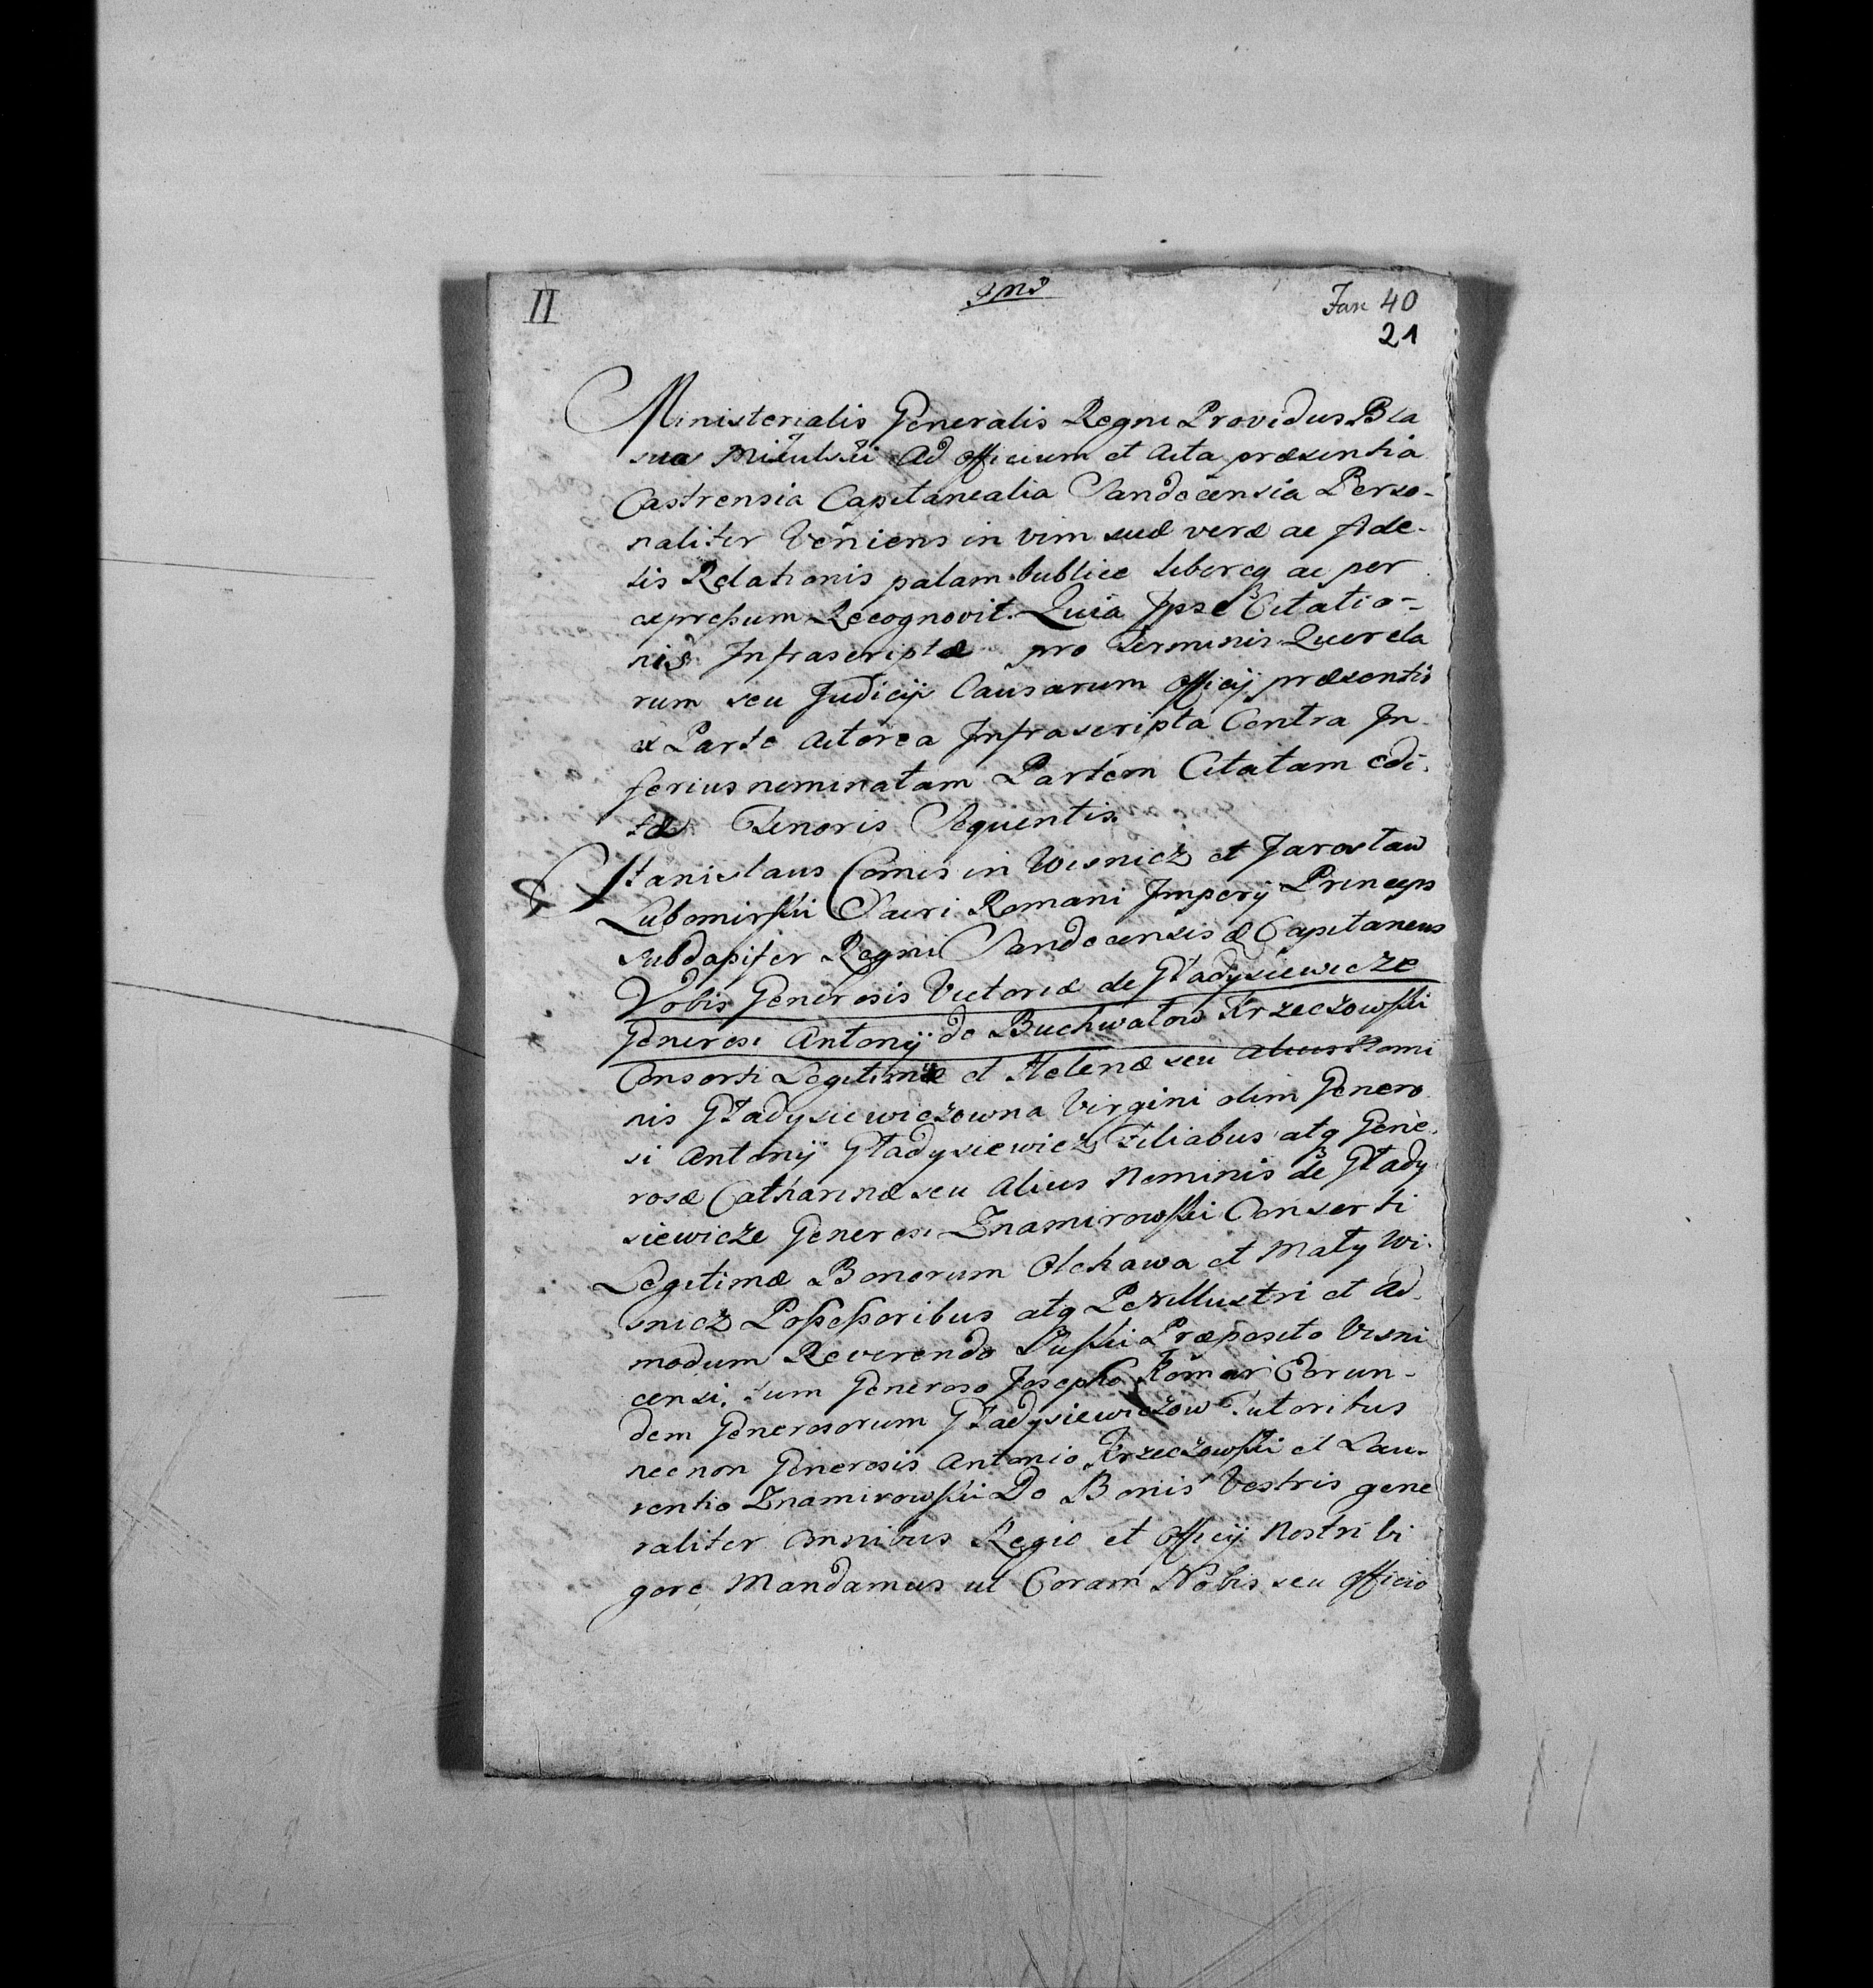 II
Fan 40
21
Ministerialis Generalis Regni Providus Bla
sius Mikulski Ad officium et Acta præsentia
Castrensia Capitanealia Sandecensia Perso-
naliter Veniens in vim suæ veræ ac fide-
lis Relationis palam publice libereq ac per
expressum Recognovit. Quia Ipse Citatio-
nis Infrascriptæ pro Terminis Querela
rum seu Judicij Causarum officij præsentis
ex Parte Actorea Infrascripta Contra In
ferius nominatam Partem Citatam edi-
tæ Tenoris Sequentis.
Stanislaus Comes in Wisnicz et Jarosław
Lubomirski Sacri Romani Imperij Princeps
subdapifer Regni Sandecensis & Capitaneus
Vobis Generosis Victoriæ de Gładysiewicze
Generosi Antonij de Buchwałow Krzeczowski
Consorti Legitimæ et Helenæ seu alius Nomi
nis Gładysiewiczowna Virgini olim Genero
si Antonij Gładysiewicz Filiabus atq Gene
rosæ Catharinæ seu Alius Nominis de Głady
siewicze Generosi Znamirowski Consorti
Legitimæ Bonorum Olchawa et Mały Wi
snicz Possessoribus atq Perillustri et Ad
modum Reverendo Præposito Visni
censi, tum Generoso Josepho Komar Eorun-
dem Generosorum Gładysiewiczow Tutoribus
necnon Generosis Antonio Krzeczowski et Lau-
rentio Znamirowski De Bonis Vestris gene
raliter omnibus Regio et officij Nostri vi
gore Mandamus ut Coram Nobis seu officio